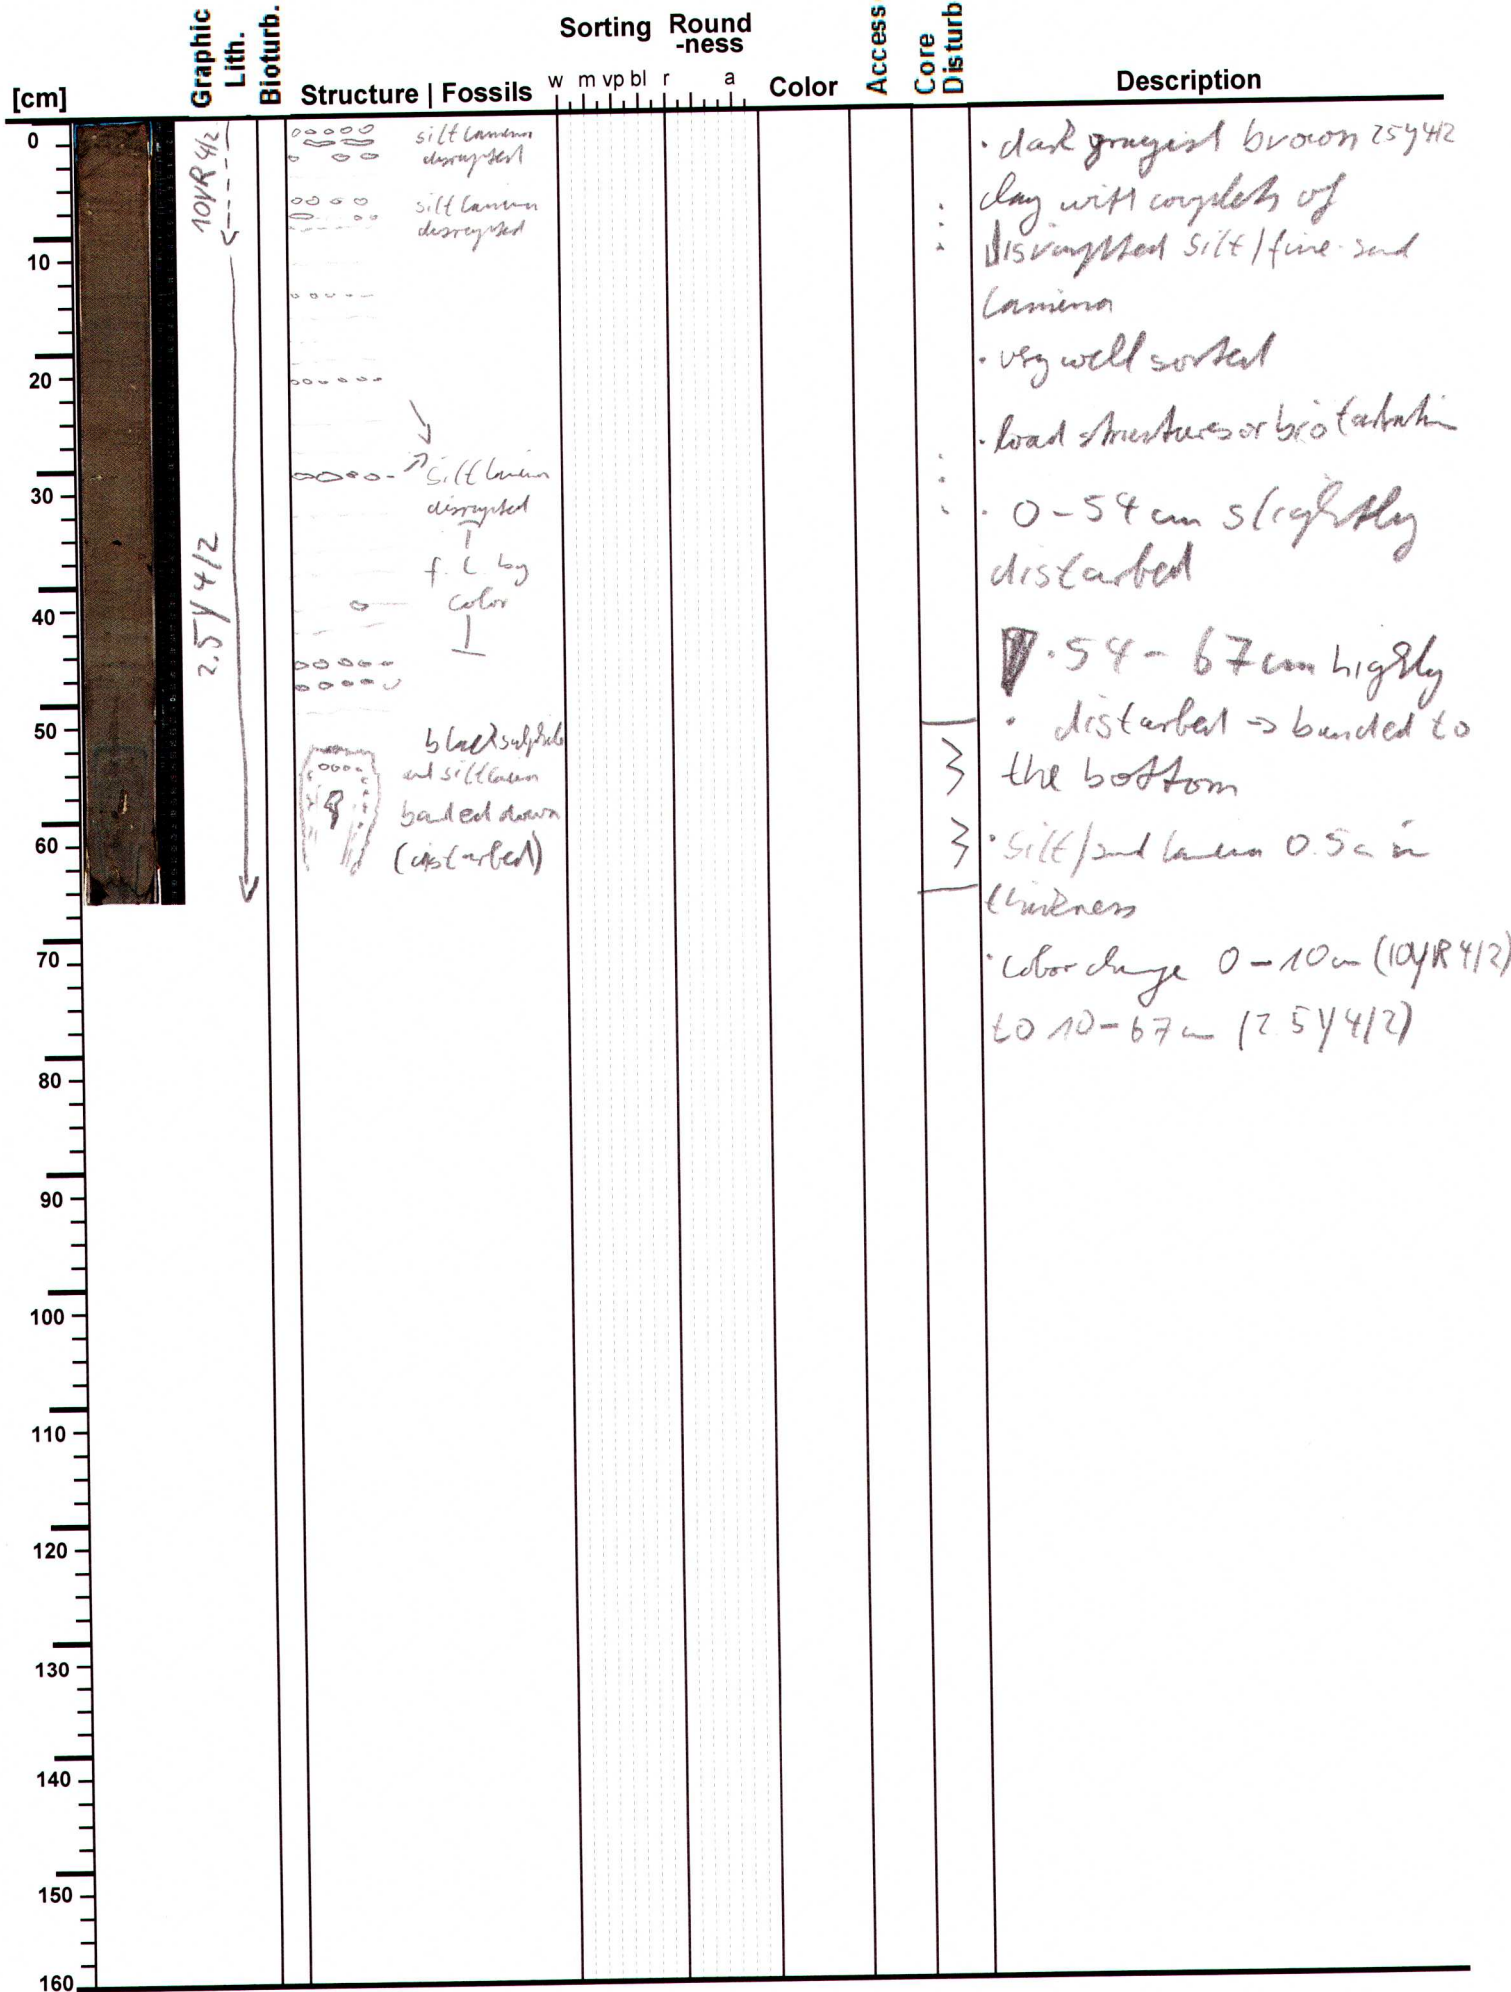 Sorting Round
-ness
Graphic
Lith.
Bioturb.
Structure | Fossils
w m vp bl r a
Color
Access
Core
Disturb
Description
[cm]
0
10
20
30
40
50
60
70
80
90
100
110
120
130
140
150
160
10YR 4/2
2.5Y 4/2
silt lamina
disrupted
silt lamina
disrupted
silt lamina
disrupted
f. L by
color
black
and silt
banded down
(disturbed)
· dark grayish brown 2.5y 4/2
clay with couplets of
disrupted silt/fine-sand
lamina
· very well sorted
· load structures or bioturbation
· 0-54 cm slightly
disturbed
· 54 - 67 cm highly
· disturbed → banded to
the bottom
· Silt/sand lamina 0.5 cm in
thickness
· Color change 0-10 cm (10YR 4/2)
to 10-67 cm (2.5Y 4/2)